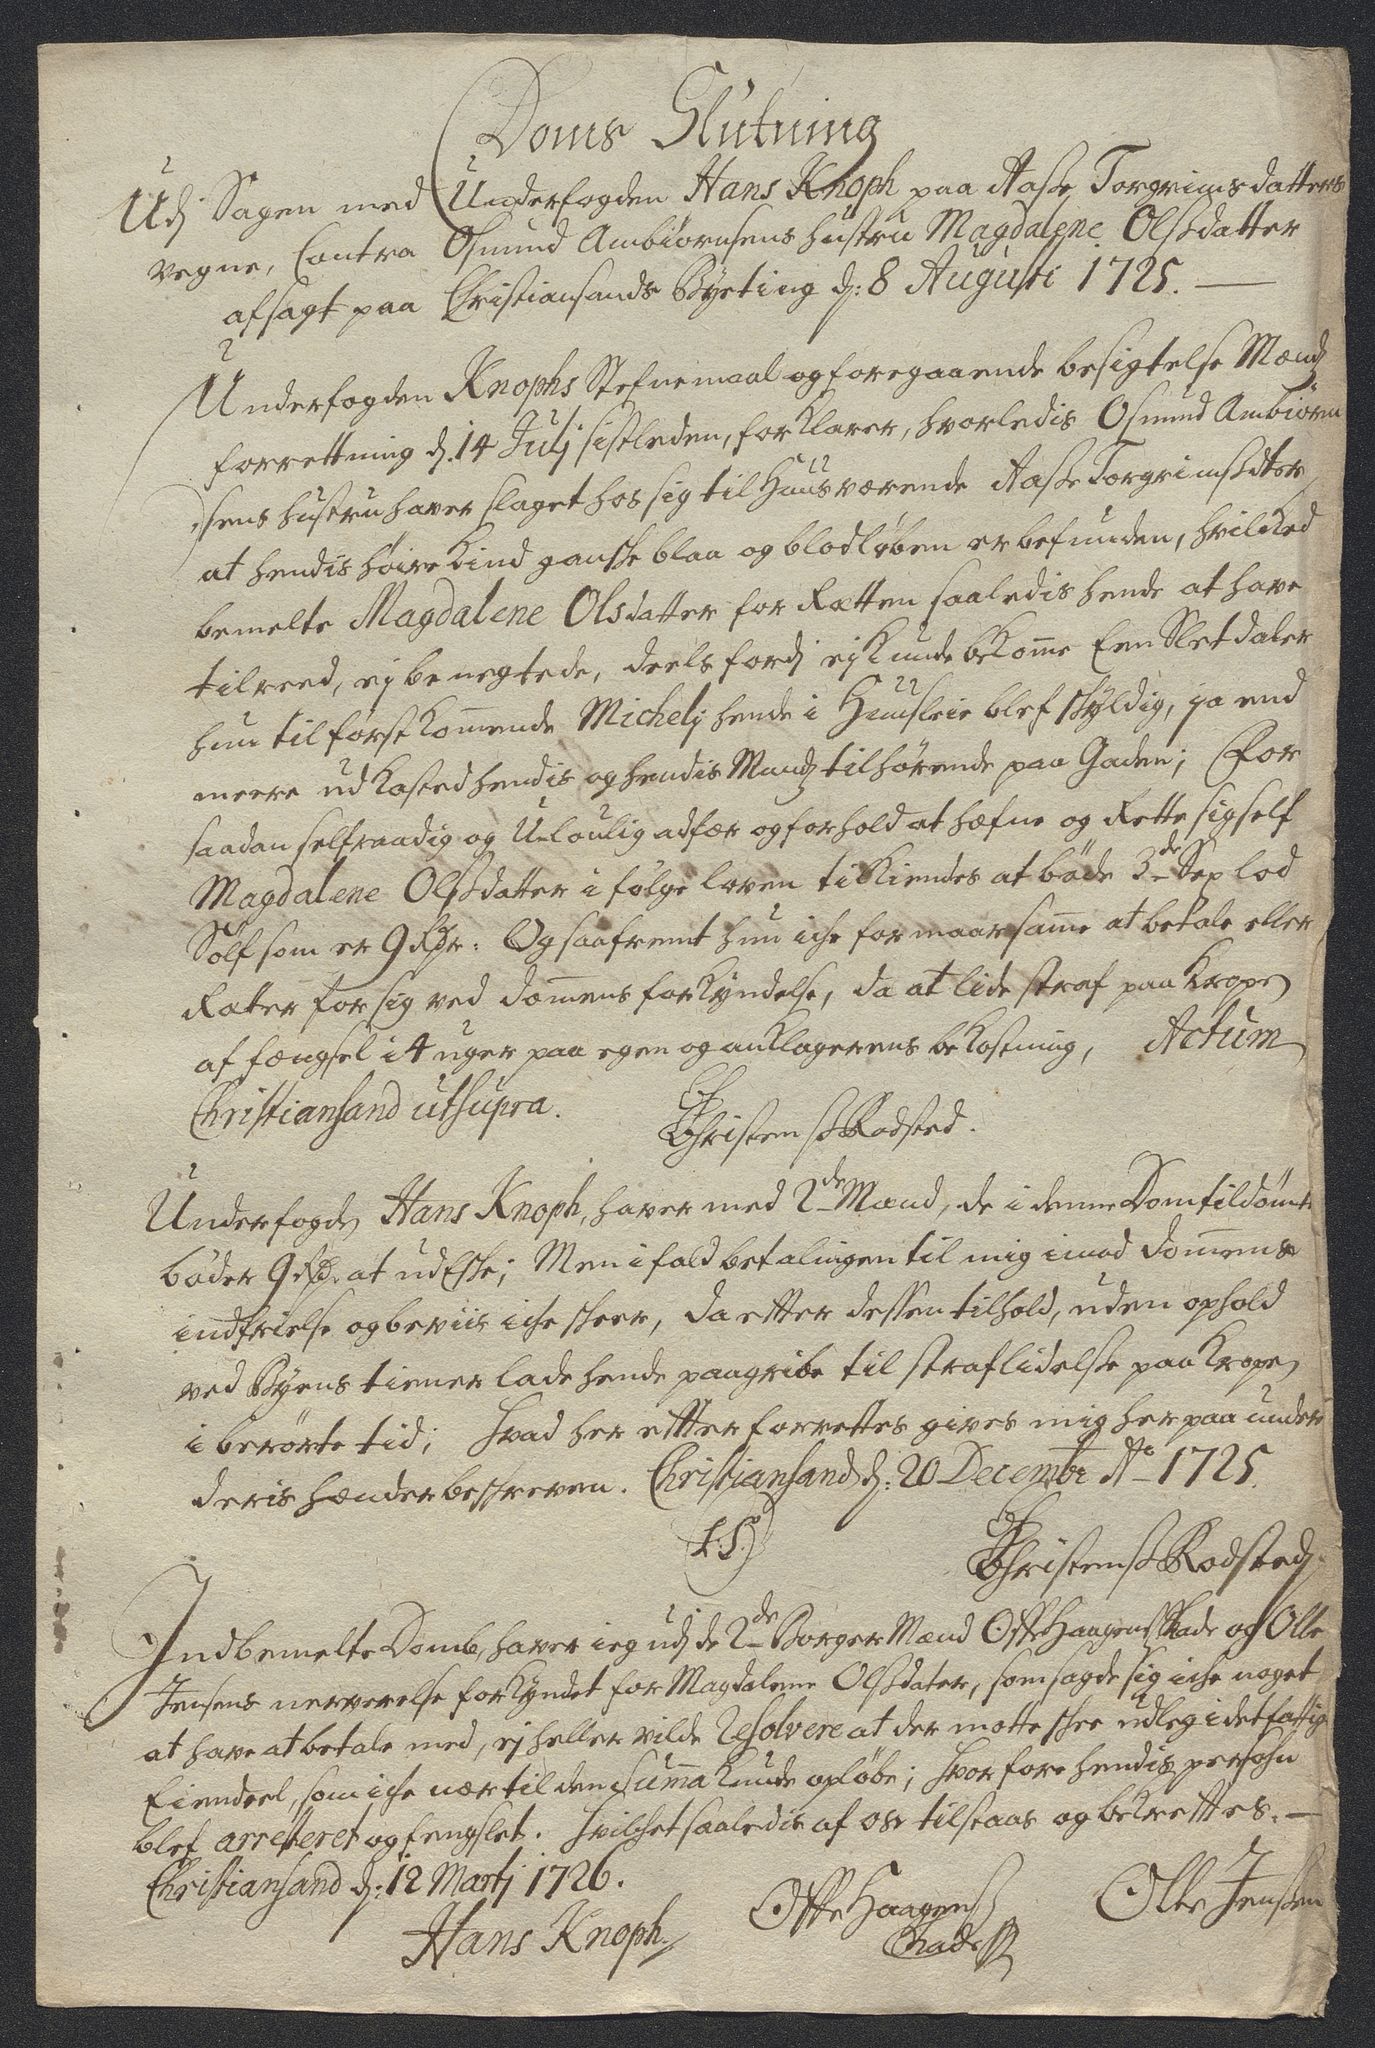 Doms Slutning
Udj Sagen med Underfogden Hans Knoph paa Aasse Torgrimsdatters
vegne, Contra Osmund Ambiörnsens hustru Magdalene Olsdatter
afsagt paa Christiansands Byeting d: 8 Augusti 1725.
Underfogden Knophs Stefnemaal og foregaaende besigtelse Mænds
forrettning d. 14 Julij sistleden, forklarer, hvorledis Osmund Ambiörn
sens hustru haver slaget hos sig til Huus værende Aasse Torgrimsdter
at hendis høire Kind ganske blaa og blodløben er befunden, hvilcked
bemelte Magdalene Olsdatter for Rætten saaledis hende at have
tilreed, ej benegtede, deels fordj ej kunde bekome Een Sletdaler
hun til førstkomende Michelj hende i Huusleie blef skyldig, ja end
meere udkasted hendis og hendis Mands tilhørende paa Gaden; For
saadan selfraadig og Ulovlig adfær og forhold at hæfne og Rette sig self
Magdalene Olsdatter i følge loven tilkiendes at bøde 3de Sex lod
Sølf som er 9 Rdr: Og saafremt hun iche formaar same at betale eller
Ræter for sig ved domens forkyndelse, da at lide straf paa Kropen
af fængsel i 4 uger paa egen og anklagerens bekostning, Actum
Christiansand ut supra.
Christenss Rodsted.
Underfogden Hans Knoph, haver med 2de Mænd, de i denne Dom tildømte
bøder 9 Rdr. at udEske; Men ifald betalingen til mig imod domens
indfrielse og beviis iche skeer, da efter dessen tilhold, uden ophold
ved Byens tiener lade hende paagribe til straflidelse paa Kropen
i berørte tid; hvad her efter forrettes gives mig her paa under
deris hænder beskreven. Christiansand d: 20 Decembr Ao 1725.
(L.S.)
Christenss Rodsted.
Indbemelte Domb, haver ieg udj de 2de Borger Mænd Offe Haagens Skade og Olle
Jensens nerverelse forkyndet for Magdalene Olsdater, som sagde sig iche noget
at have at betale med, ej heller vilde Resolvere at der motte skee udleg i det fattig
Eiendeel, som iche nær til den Summa kunde opløbe; hvorfore hendis persohn
blef arresteret og fengslet. hvilchet saaledis af os tilstaas og bekreftes.
Christiansand d: 12 Martj 1726.
Hans Knoph.
Offe Haagens
Skade
Olle Jensen